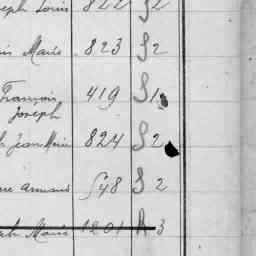 Joseph Louis 822 S 2
Marie 823 S 2
François Joseph 419 S 1
Jean Marie 824 S 2
Armand 548 S 2
Marie 1201 R 3